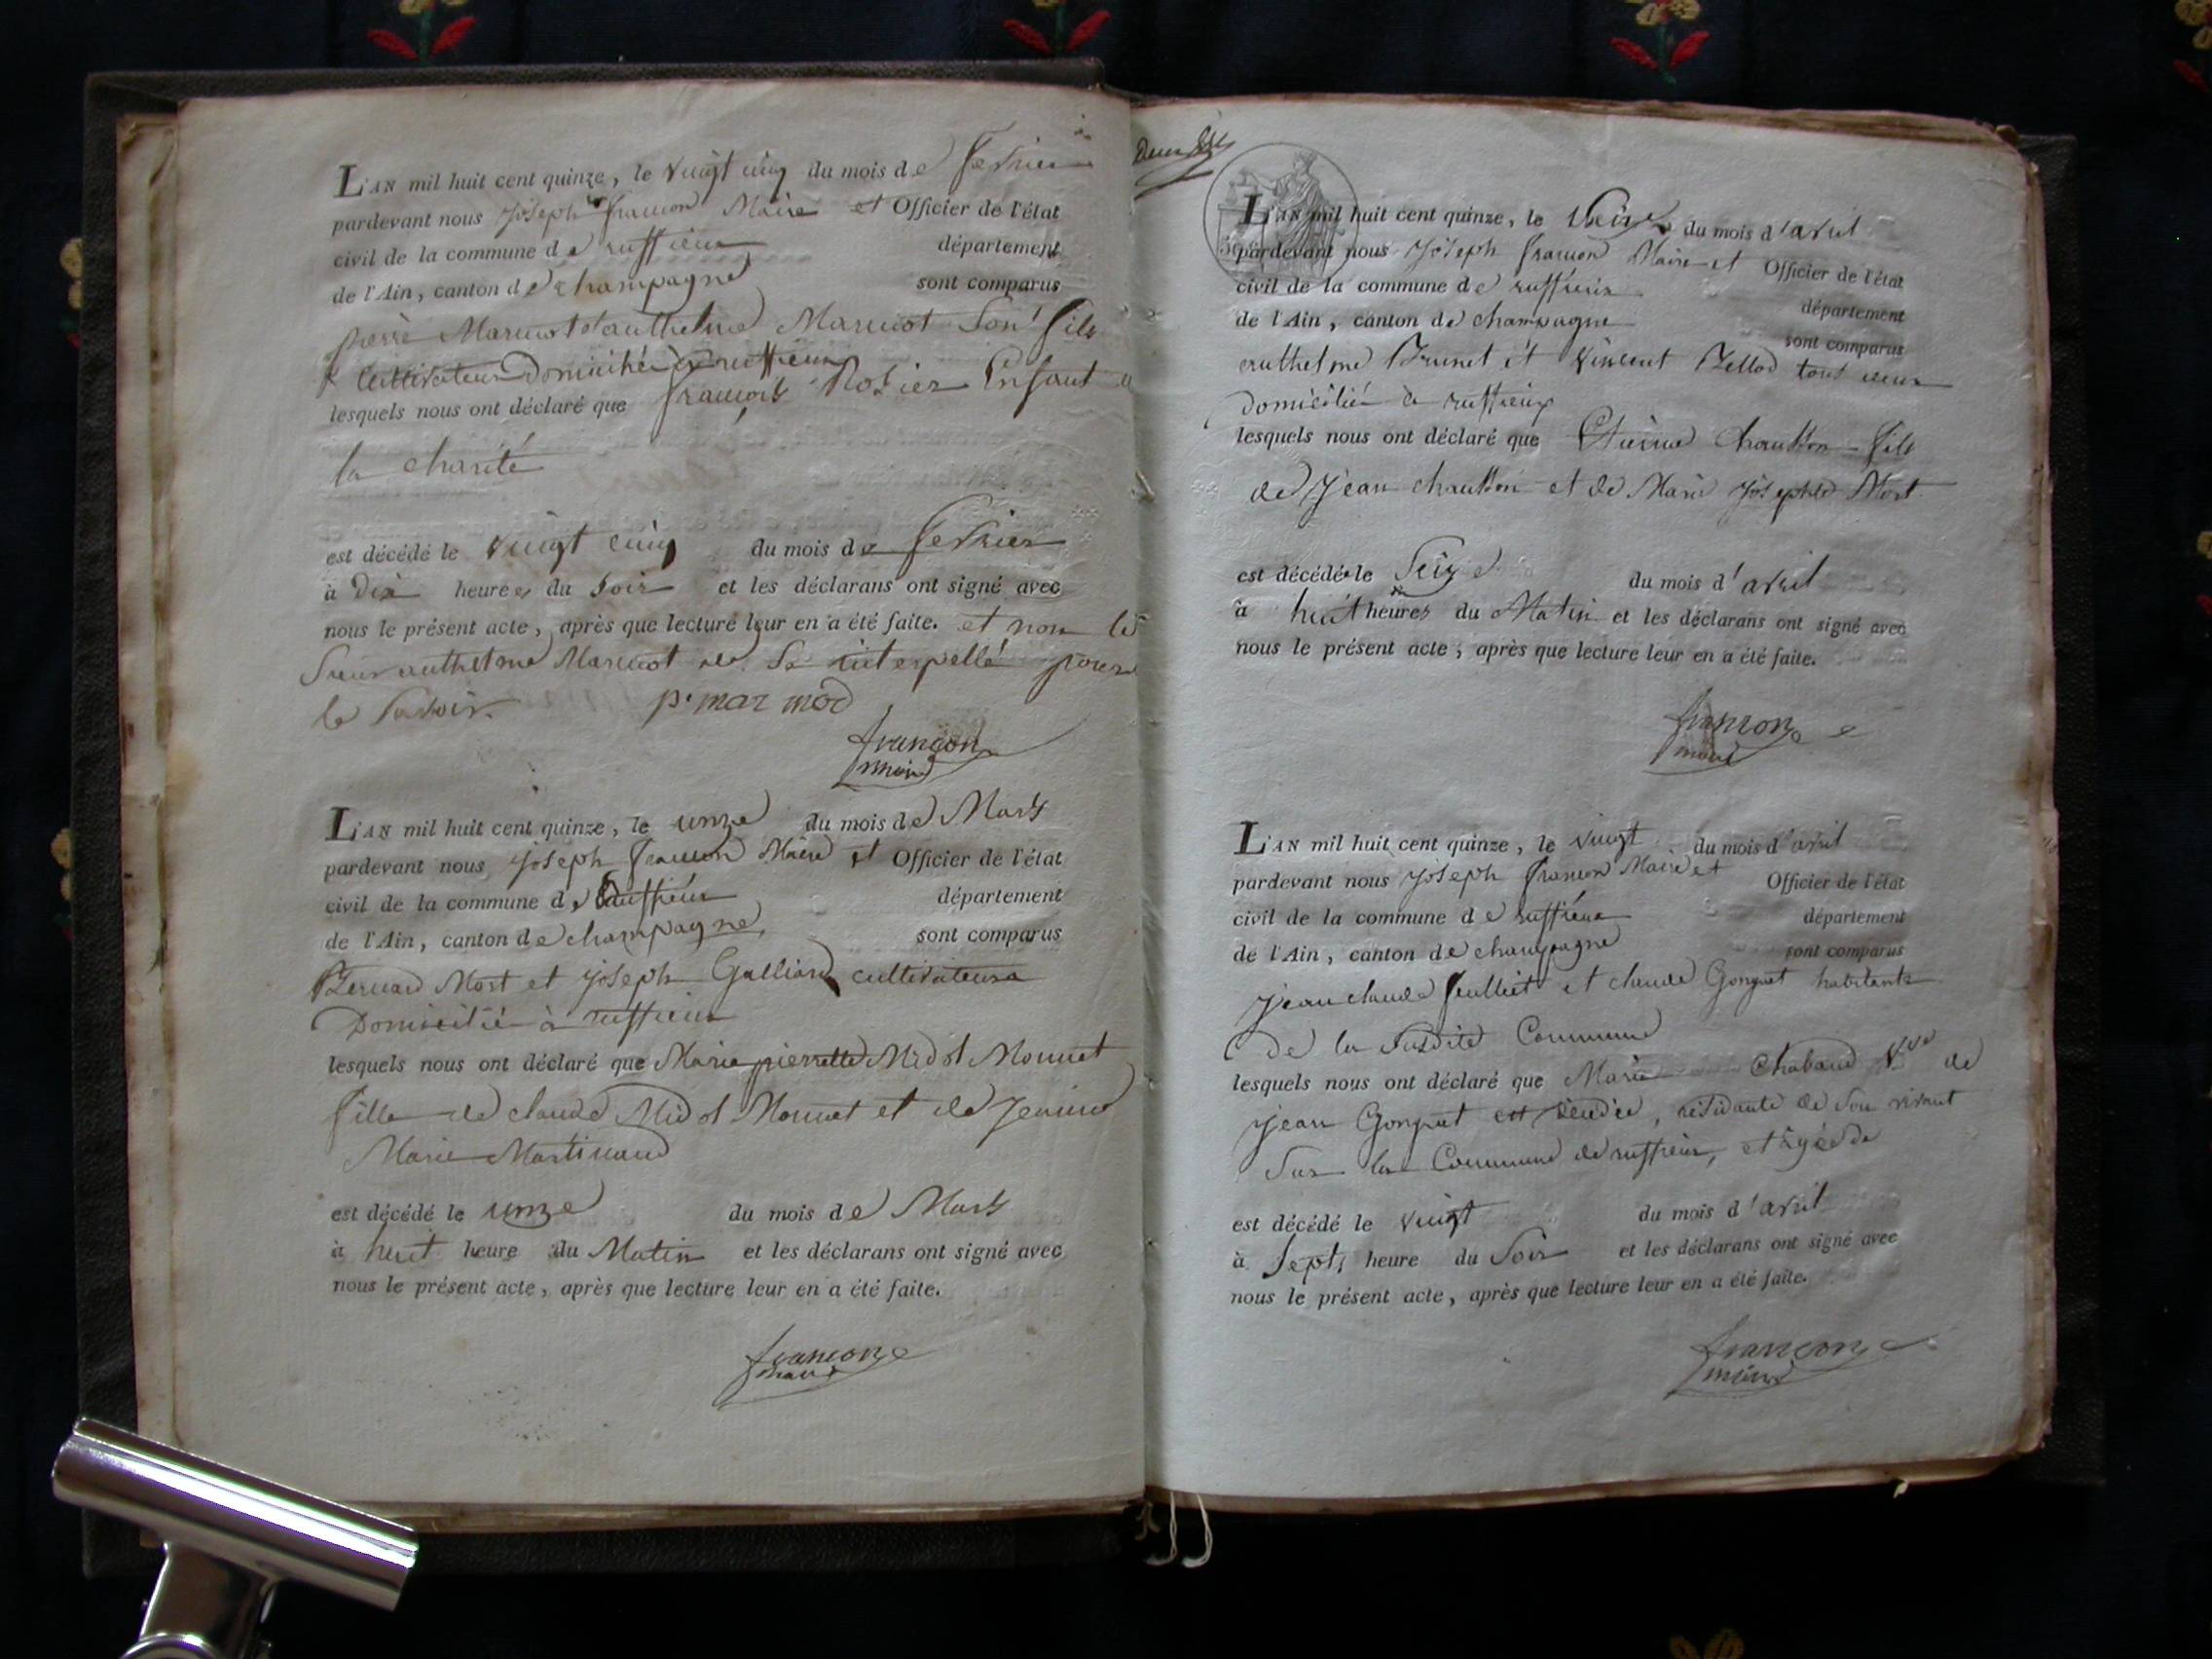 L'AN mil huit cent quinze, le vingt cinq du mois de fevrier
pardevant nous joseph francon Maire et Officier de l'état
civil de la commune de ruffieux département
de l'Ain, canton de champagne sont comparus
pierre Marmot et anthelme Marmot Son fils
Cultivateurs Domiciliés a ruffieux
lesquels nous ont déclaré que françois Rosier Enfant a
la charité
est décédé le vingt cinq du mois de fevrier
à Dix heures du Soir et les déclarans ont signé avec
nous le présent acte, après que lecture leur en a été faite. et non le
Sieur anthelme Marmot de Se interpellé pour
le Savoir. p. mar mod
francon
maire
L'AN mil huit cent quinze, le unze du mois de Mars
pardevant nous joseph francon Maire et Officier de l'état
civil de la commune de Ruffieux département
de l'Ain, canton de champagne sont comparus
Bernard Most et joseph Galliard cultivateurs
Domicilié à ruffieux
lesquels nous ont déclaré que Marie pierrette Midol Monnet
fille de claude Midol Monnet et de jeanne
Marie Martinand
est décédé le unze du mois de Mars
à huit heure du Matin et les déclarans ont signé avec
nous le présent acte, après que lecture leur en a été faite.
francon
maire
L'AN mil huit cent quinze, le Seize du mois d'avril
pardevant nous joseph francon Maire et Officier de l'état
civil de la commune de ruffieux département
de l'Ain, canton de champagne sont comparus
anthelme Brunet et vincent Bellod tous deux
domicilié à ruffieux
lesquels nous ont déclaré que Etienne chausson fils
de jean chausson et de Marie josephte Most
est décédé le Seize du mois d'avril
à huit heures du Matin et les déclarans ont signé avec
nous le présent acte, après que lecture leur en a été faite.
francon
maire
L'AN mil huit cent quinze, le vingt du mois d'avril
pardevant nous joseph francon Maire et Officier de l'état
civil de la commune de ruffieux département
de l'Ain, canton de champagne sont comparus
jean claude feulliet et claude Gonguet habitants
De la Susdite Commune
lesquels nous ont déclaré que Marie Chabaud Vve de
jean Gonguet est décédée, résidante de Son vivant
Sur la Commune de ruffieux, et âgée de
est décédé le vingt du mois d'avril
à Sept heure du Soir et les déclarans ont signé avec
nous le présent acte, après que lecture leur en a été faite.
francon
maire